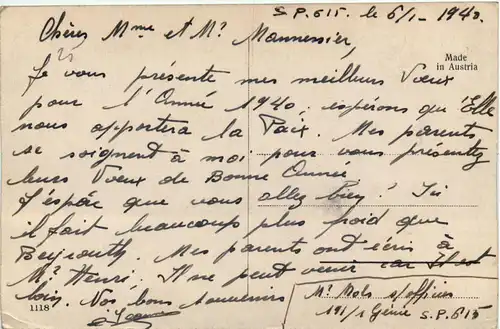 S.P. 615. le 6/1 - 1940.
Chères Mme et Mr Monnessier,
Made
in Austria
Je vous présente mes meilleurs Vœux
pour l'Année 1940. espérons qu'Elle
nous apportera la Paix. Mes parents
se soignent à moi pour vous présentez
leurs Vœux de Bonne Année
J'espãc que vous allez bien! Ici
il fait beaucoup plus froid que
Beyrouth. Mes parents ont écris à
Mr Henri, Il ne peut venir car Il est
loin. Nos bons souvenirs
1118
Mr Bols s/officier
191/1 Génie S.P. 615